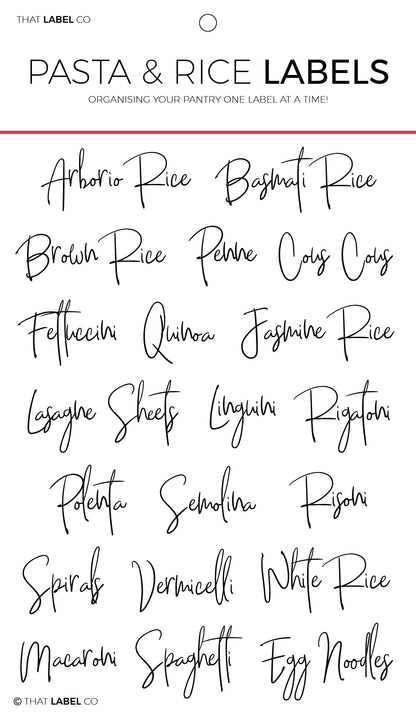 THAT LABEL CO
PASTA & RICE LABELS
ORGANISING YOUR PANTRY ONE LABEL AT A TIME!
Arborio Rice Basmati Rice
Brown Rice Penne Cous Cous
Fettuccini Quinoa Jasmine Rice
Lasagne Sheets Linguini Rigatoni
Polenta Semolina Risoni
Spirals Vermicelli White Rice
Macaroni Spaghetti Egg Noodles
© THAT LABEL CO